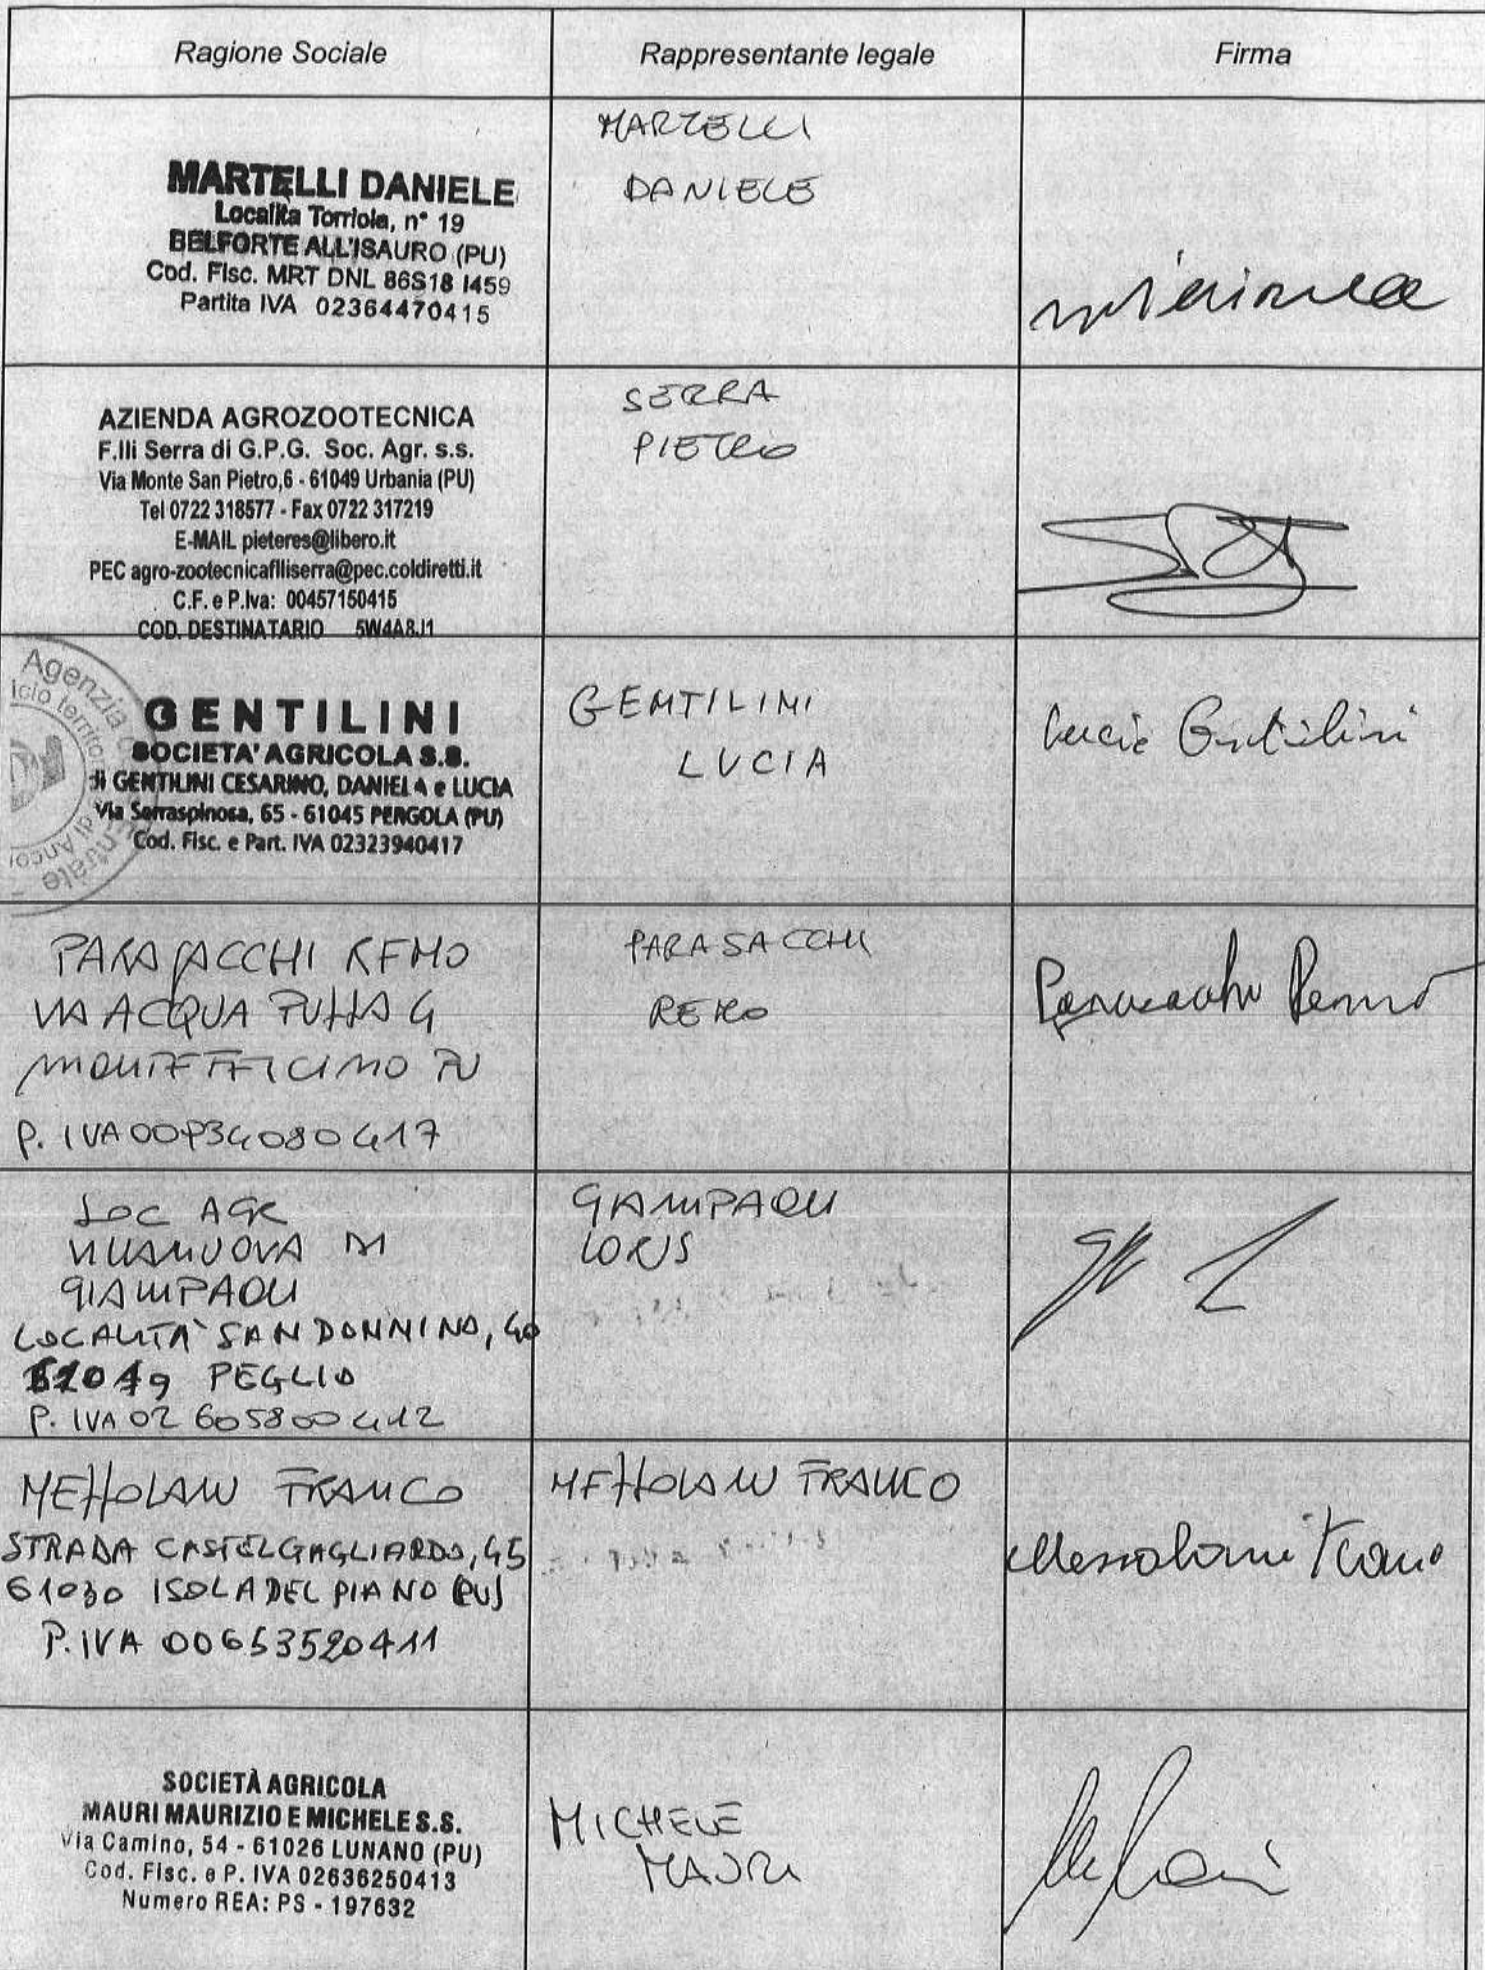 Ragione Sociale
Rappresentante legale
Firma
MARTELLI DANIELE
Località Torriola, n° 19
BELFORTE ALL'ISAURO (PU)
Cod. Fisc. MRT DNL 86S18 I459
Partita IVA 02364470415
MARTELLI
DANIELE
AZIENDA AGROZOOTECNICA
F.lli Serra di G.P.G. Soc. Agr. s.s.
Via Monte San Pietro,6 - 61049 Urbania (PU)
Tel 0722 318577 - Fax 0722 317219
E-MAIL pieteres@libero.it
PEC agro-zootecnicaflliserra@pec.coldiretti.it
C.F. e P.Iva: 00457150415
COD. DESTINATARIO 5W4A8J1
SERRA
PIETRO
Agenzia
GENTILINI
SOCIETA' AGRICOLA S.S.
di GENTILINI CESARINO, DANIELA e LUCIA
Via Serraspinosa, 65 - 61045 PERGOLA (PU)
Cod. Fisc. e Part. IVA 02323940417
GENTILINI
LUCIA
Lucia Gentilini
PARASACCHI REMO
VIA ACQUA
P. IVA
PARASACCHI
REMO
Parasacchi Remo
SOC AGR
VILLANUOVA DI
GIAMPAOLI
LOCALITA' SAN DONNINO, 40
61049 PEGLIO
P. IVA 02605800412
GIAMPAOLI
LORIS
FRANCO
STRADA CASTELGAGLIARDO, 45
61030 ISOLA DEL PIANO (PU)
P. IVA 00653520411
FRANCO
SOCIETÀ AGRICOLA
MAURI MAURIZIO E MICHELE S.S.
Via Camino, 54 - 61026 LUNANO (PU)
Cod. Fisc. e P. IVA 02636250413
Numero REA: PS - 197632
MICHELE
MAURI